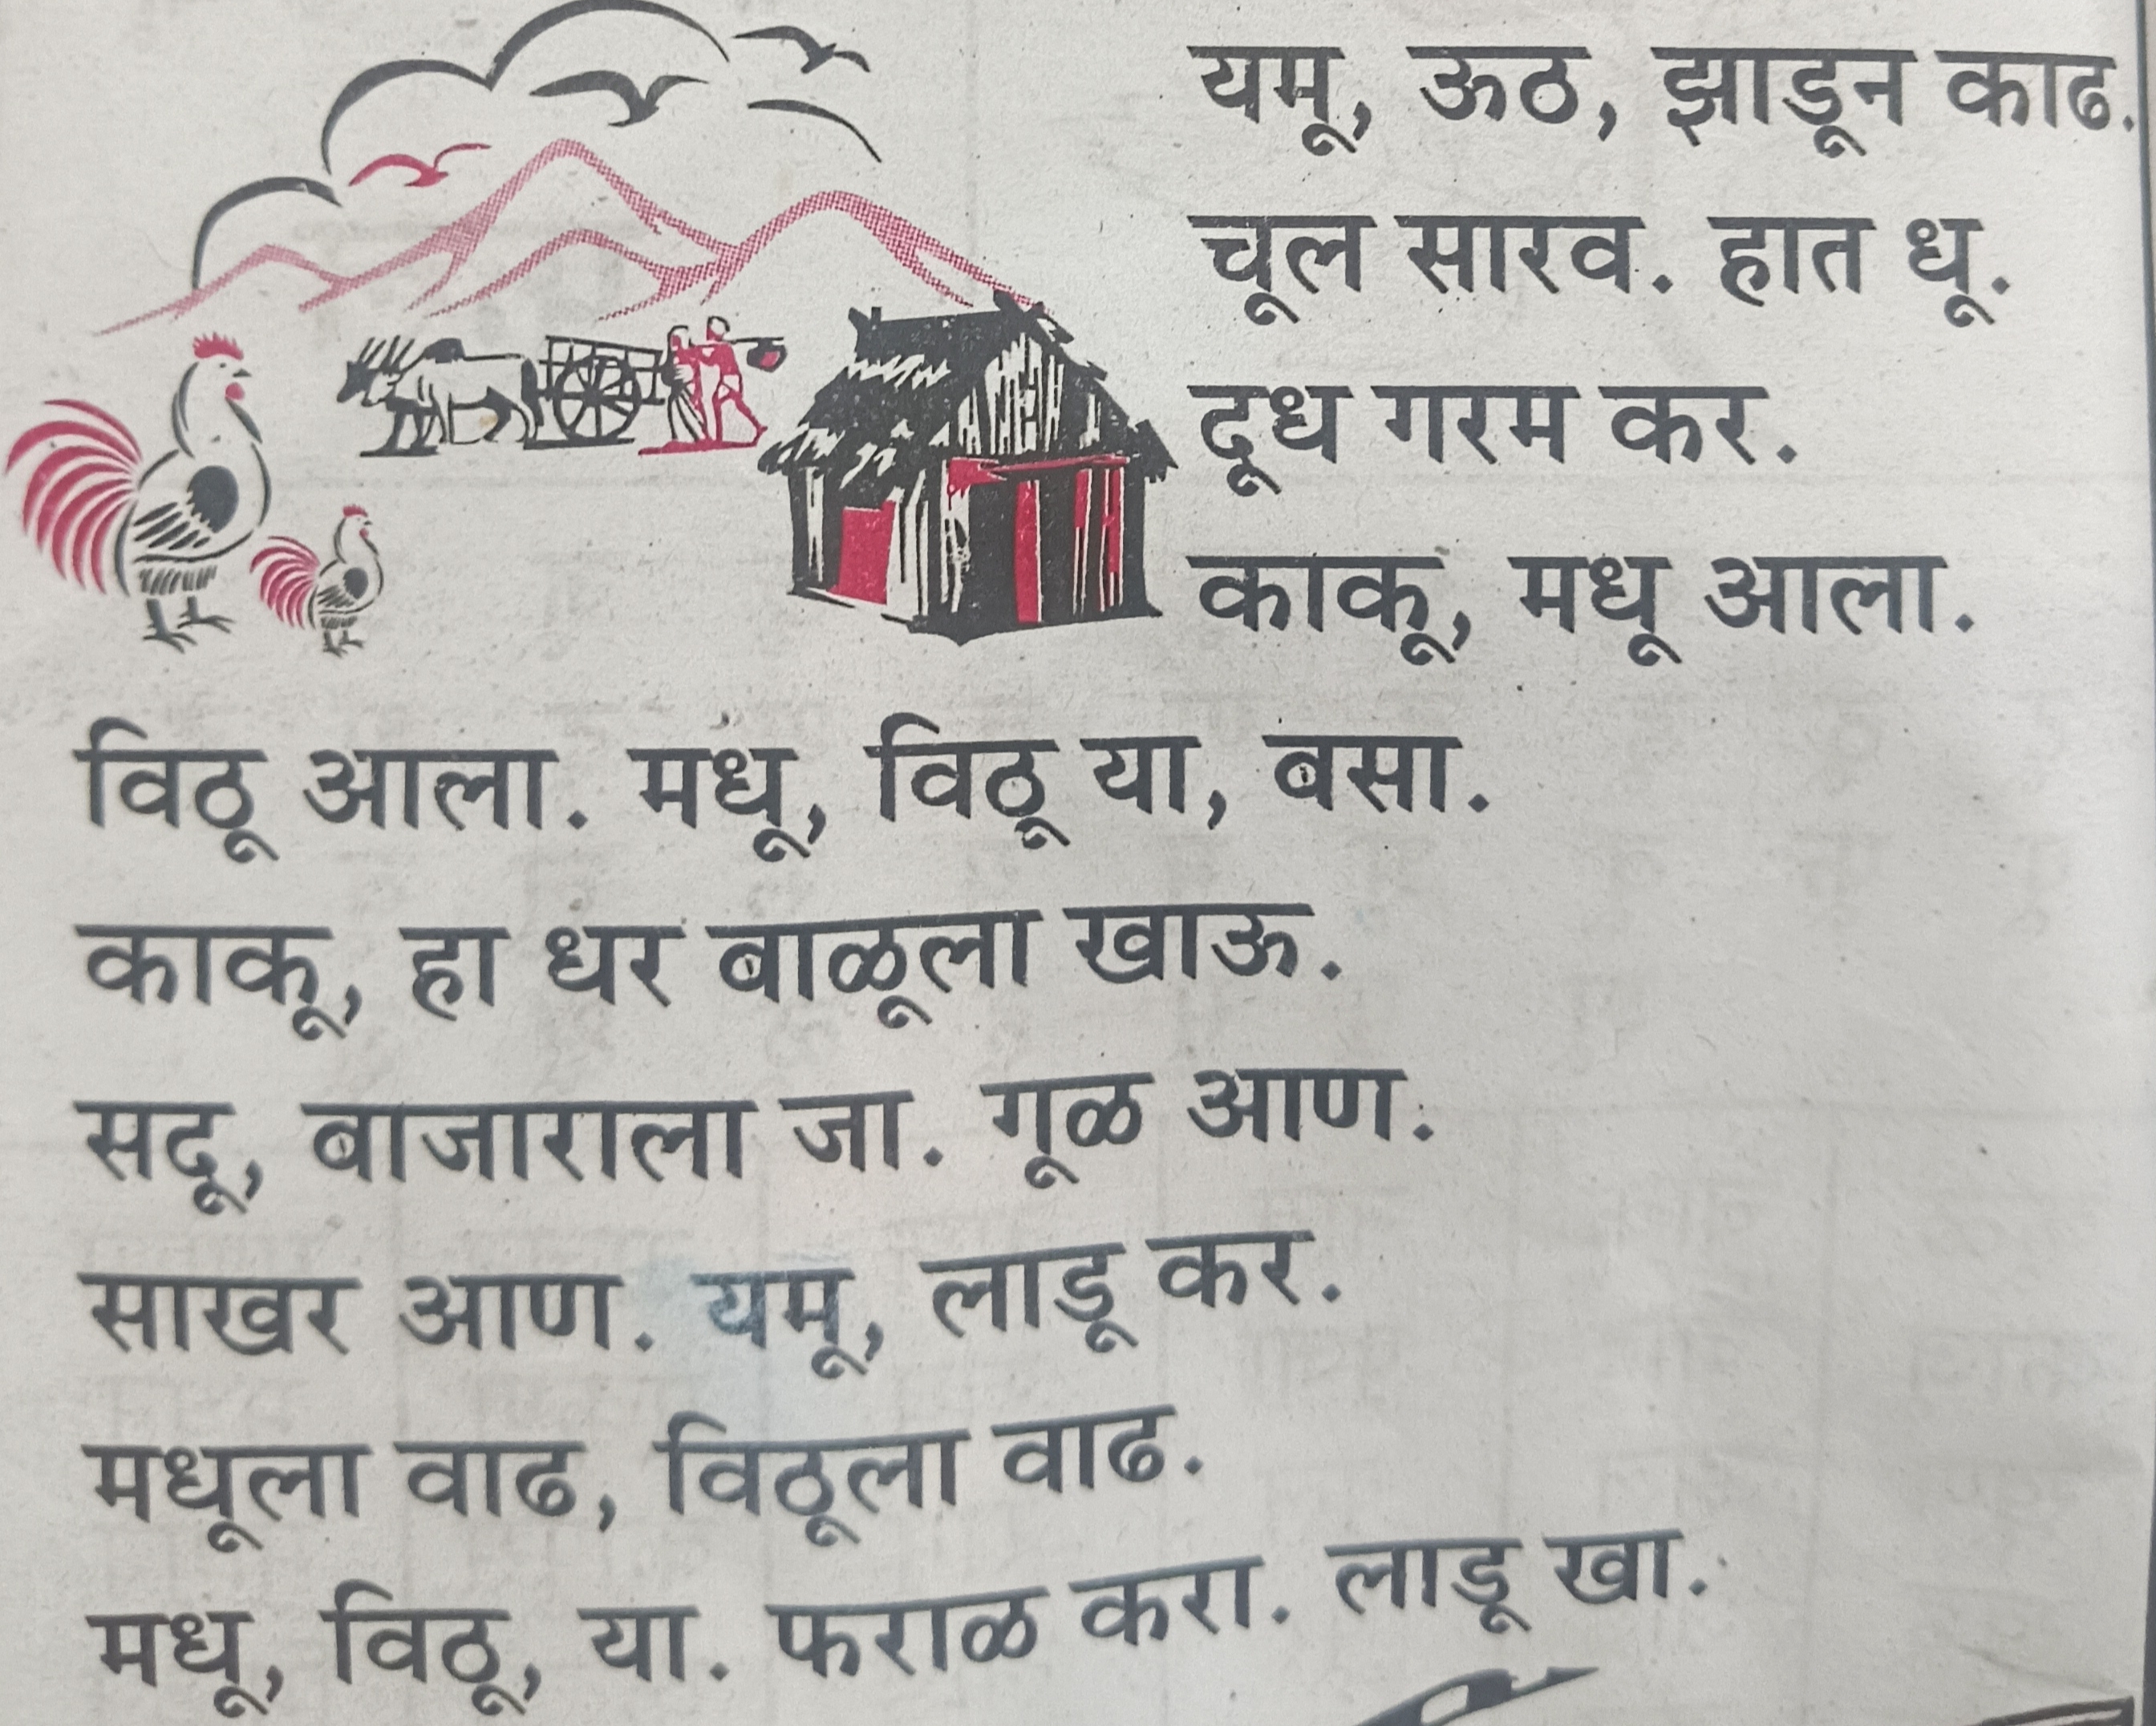 यमू, ऊठ, झाडून काढ.
चूल सारव. हात धू.
दूध गरम कर.
काकू, मधू आला.
विठू आला. मधू, विठू या, बसा.
काकू, हा धर बाळूला खाऊ.
सदू, बाजाराला जा. गूळ आण.
साखर आण. यमू, लाडू कर.
मधूला वाढ, विठूला वाढ.
मधू, विठू, या. फराळ करा. लाडू खा.